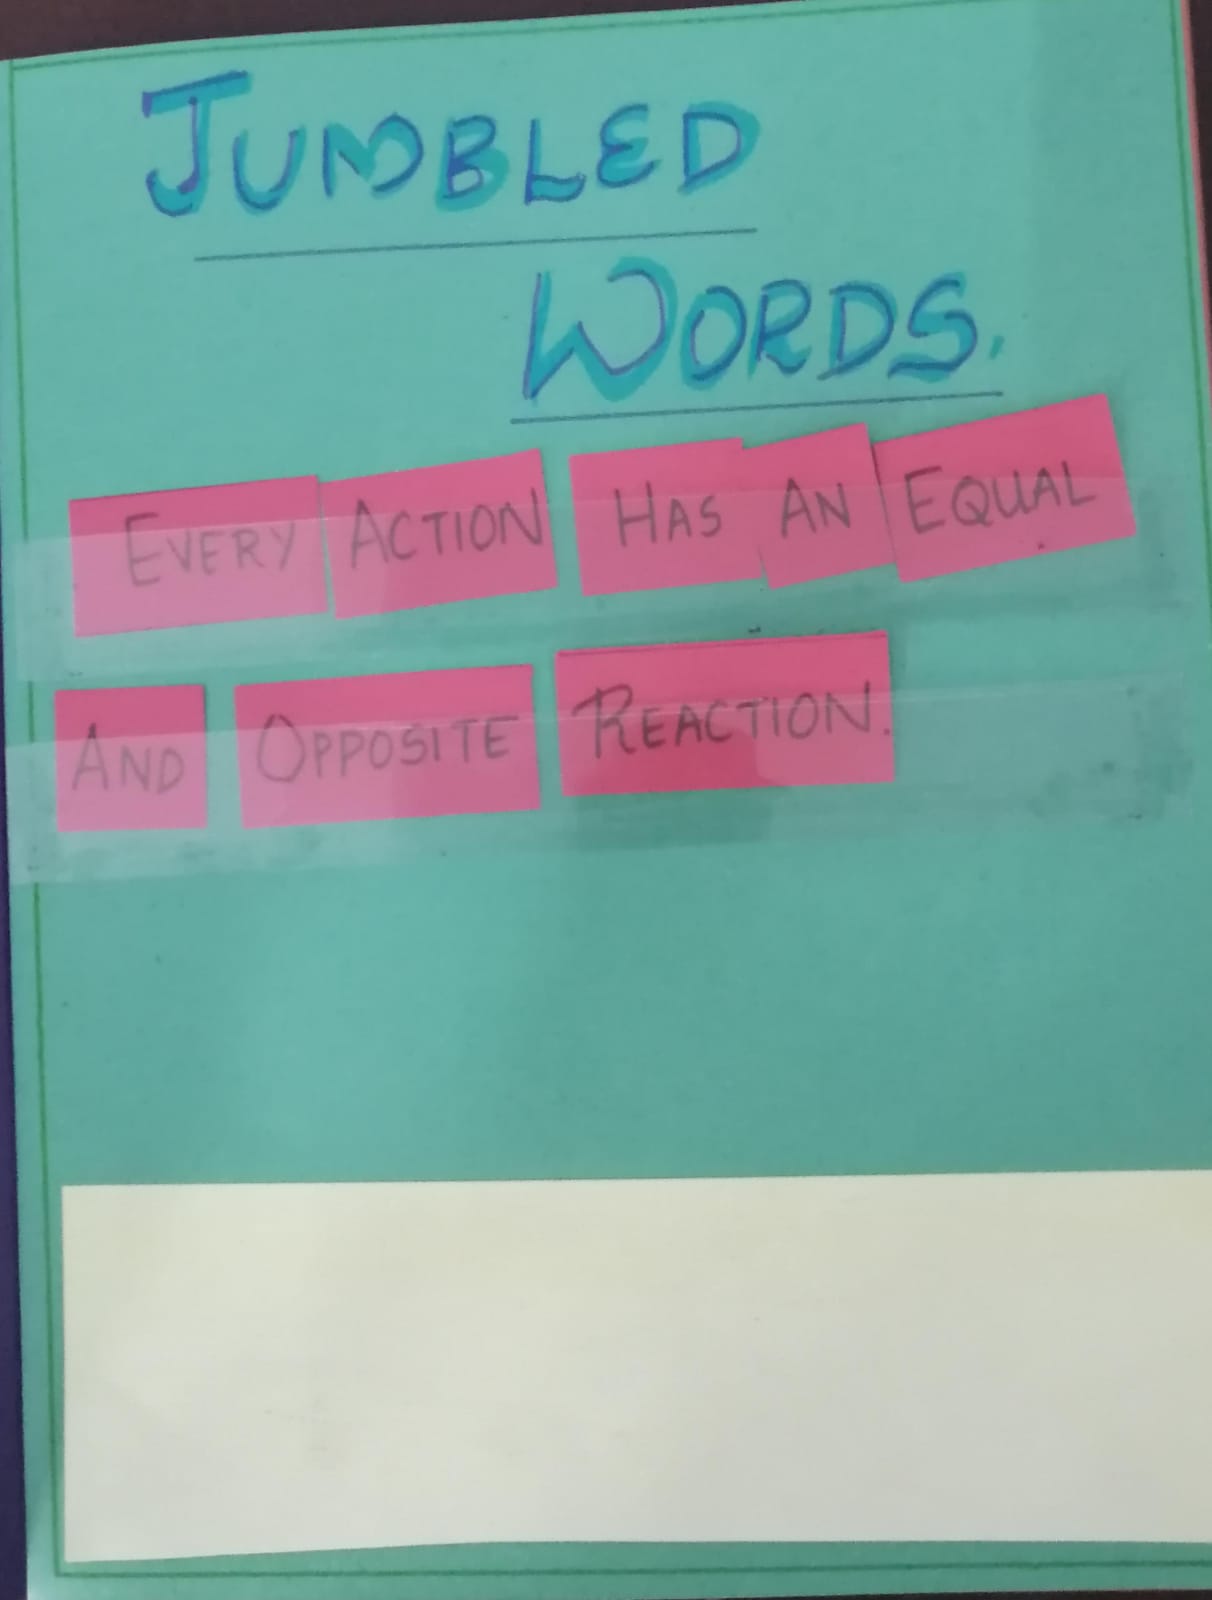 JUMBLED
WORDS.
EVERY ACTION HAS AN EQUAL
AND OPPOSITE REACTION.